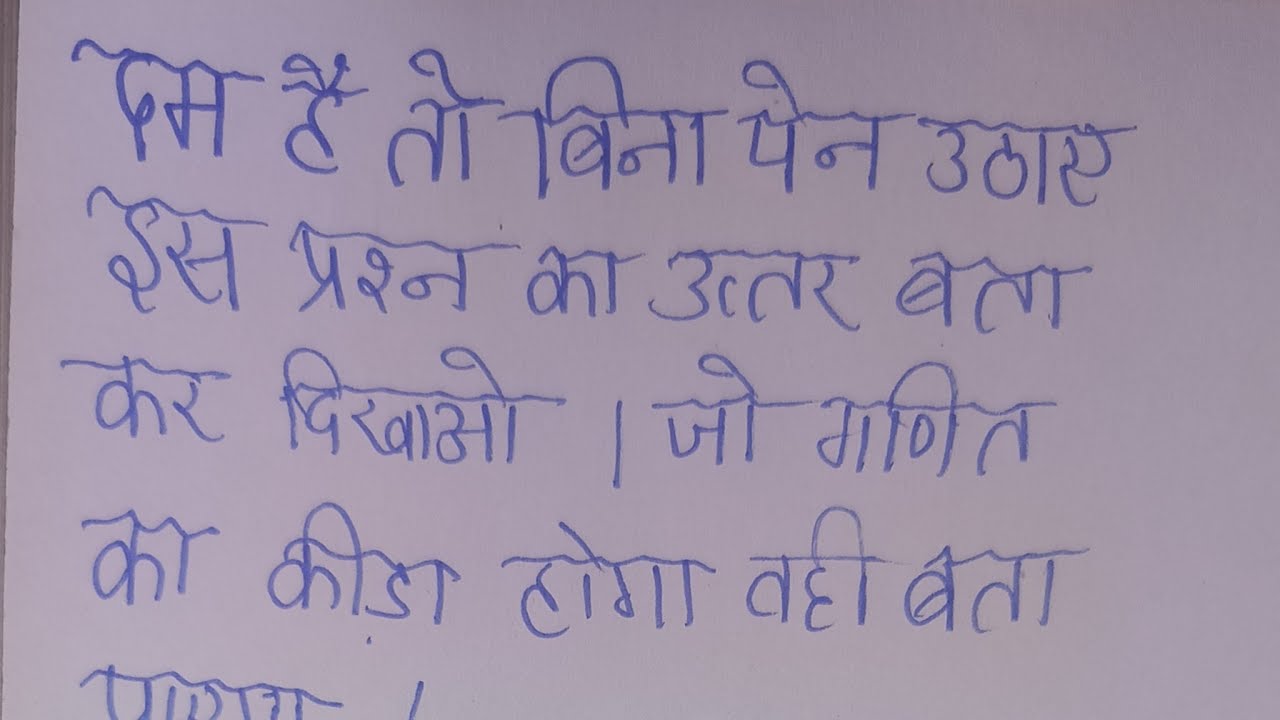 दम है तो बिना पेन उठाए
इस प्रश्न का उत्तर बता
कर दिखाओ । जो गणित
का कीड़ा होगा वही बता
पाएगा ।